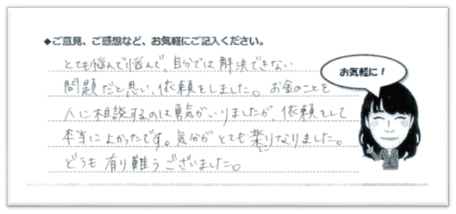 ◆ご意見、ご感想など、お気軽にご記入ください。
とても悩んで悩んで、自分では解決できない
問題だと思い、依頼をしました。お金のことを
人に相談するのは勇気がいりましたが、依頼をして
本当によかったです。気分がとても楽になりました。
どうも有り難うございました。
お気軽に！